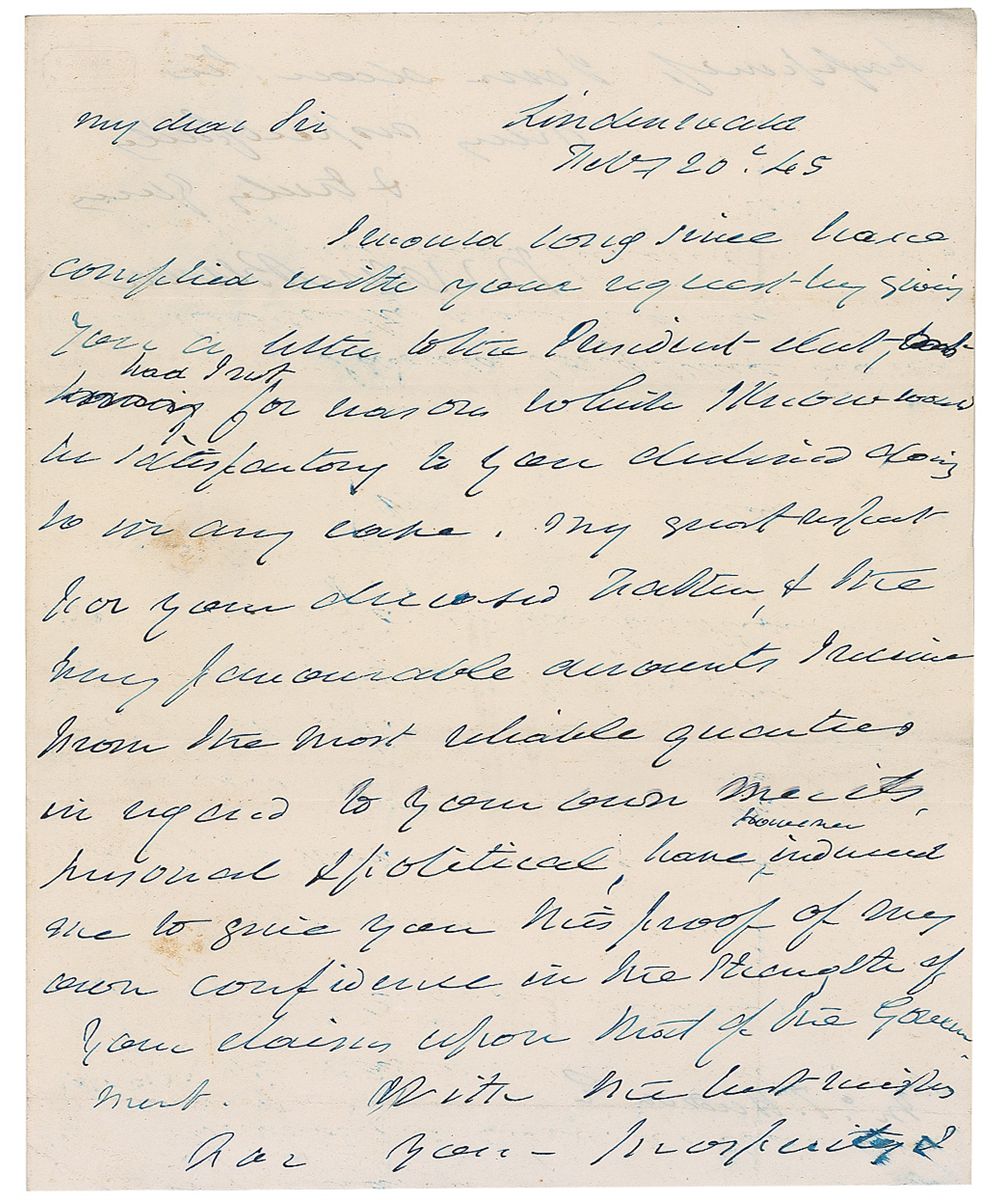 My dear Sir Lindenwald
Feby 20th 45
I would long since have
complied with your request by giving
you a letter to the President elect,
had I not
for reasons which I know would
be satisfactory to you declined doing
so in any case. My great respect
for your deceased Father, & the
very favourable accounts I receive
from the most reliable quarters
in regard to your own merits,
however
personal & political, have induced
me to give you this proof of my
own confidence in the strength of
your claims upon that of the Govern
ment. With the best wishes
for your prosperity &